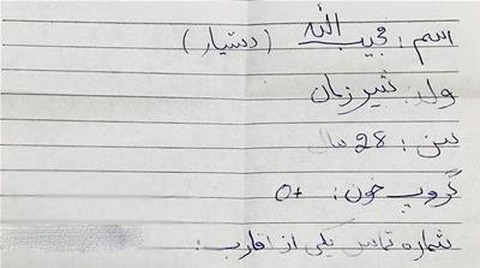 اسم: مجیب الله (دستیار)
ولد: شیر زمان
سن: 28 سال
گروپ خون: O+
شماره تماس یکی از اقارب: